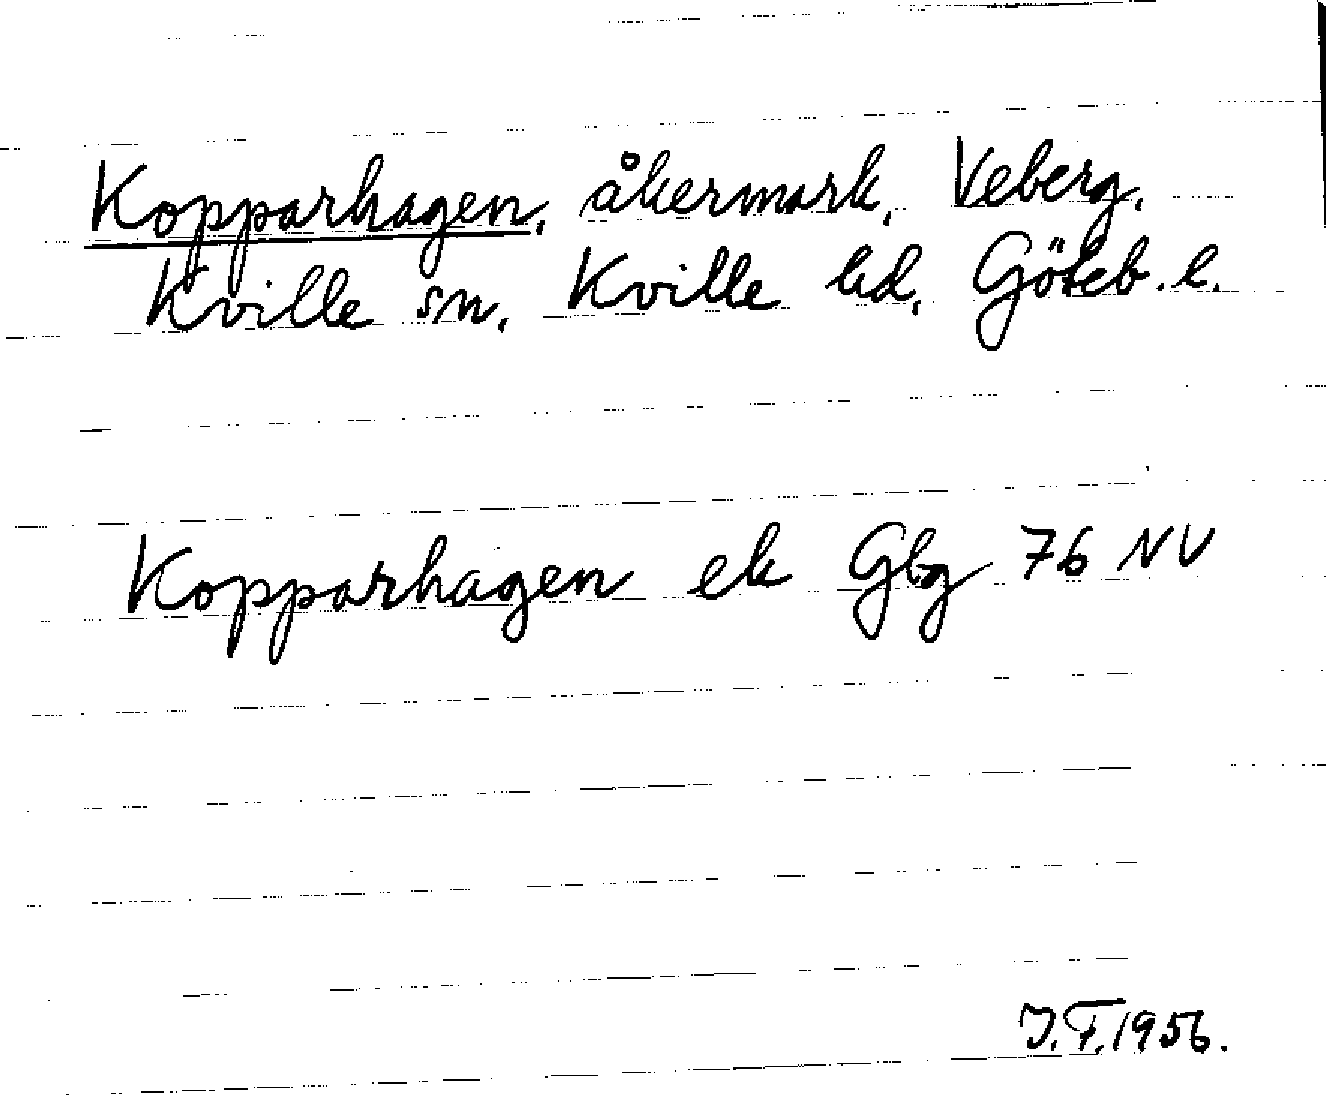 Kopparhagen, åkermark, Veberg,
Kville sn, Kville hd, Göteb. l.
Kopparhagen ek Gbg 76 NV
J.F. 1956.